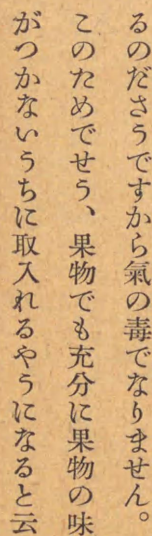 るのださうですから氣の毒でなりません。
このためでせう、果物でも充分に果物の味
がつかないうちに取入れるやうになると云